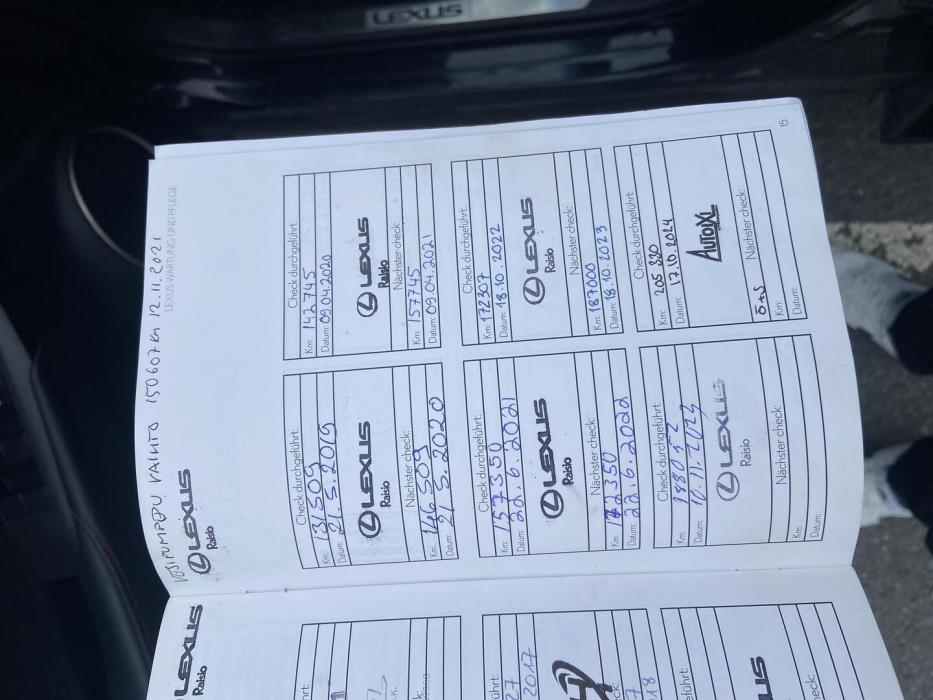 LEXUS
VESIPUMPPU VAIHTO 150607 KM 12.11.2021
LEXUS WARTUNG UND PFLEGE
LEXUS
Raisio
Check durchgeführt:
Km: 131509
Datum: 21.5.2019
LEXUS
Raisio
Nächster check:
Km: 146509
Datum: 21.5.2020
Check durchgeführt:
Km: 142745
Datum: 09.04.2020
LEXUS
Raisio
Nächster check:
Km: 157745
Datum: 09.04.2021
Check durchgeführt:
Km: 157350
Datum: 22.6.2021
LEXUS
Raisio
Nächster check:
Km: 172350
Datum: 22.6.2022
Check durchgeführt:
Km: 172307
Datum: 18.10.2022
LEXUS
Raisio
Nächster check:
Km: 187000
Datum: 18.10.2023
Check durchgeführt:
Km: 188052
Datum: 10.11.2023
LEXUS
Raisio
Nächster check:
Km:
Datum:
Check durchgeführt:
Km: 205 320
Datum: 17.10.2024
AUTOXL
Nächster check:
Ö+S
Km:
Datum:
15
LEXUS
Raisio
2017
LEXUS